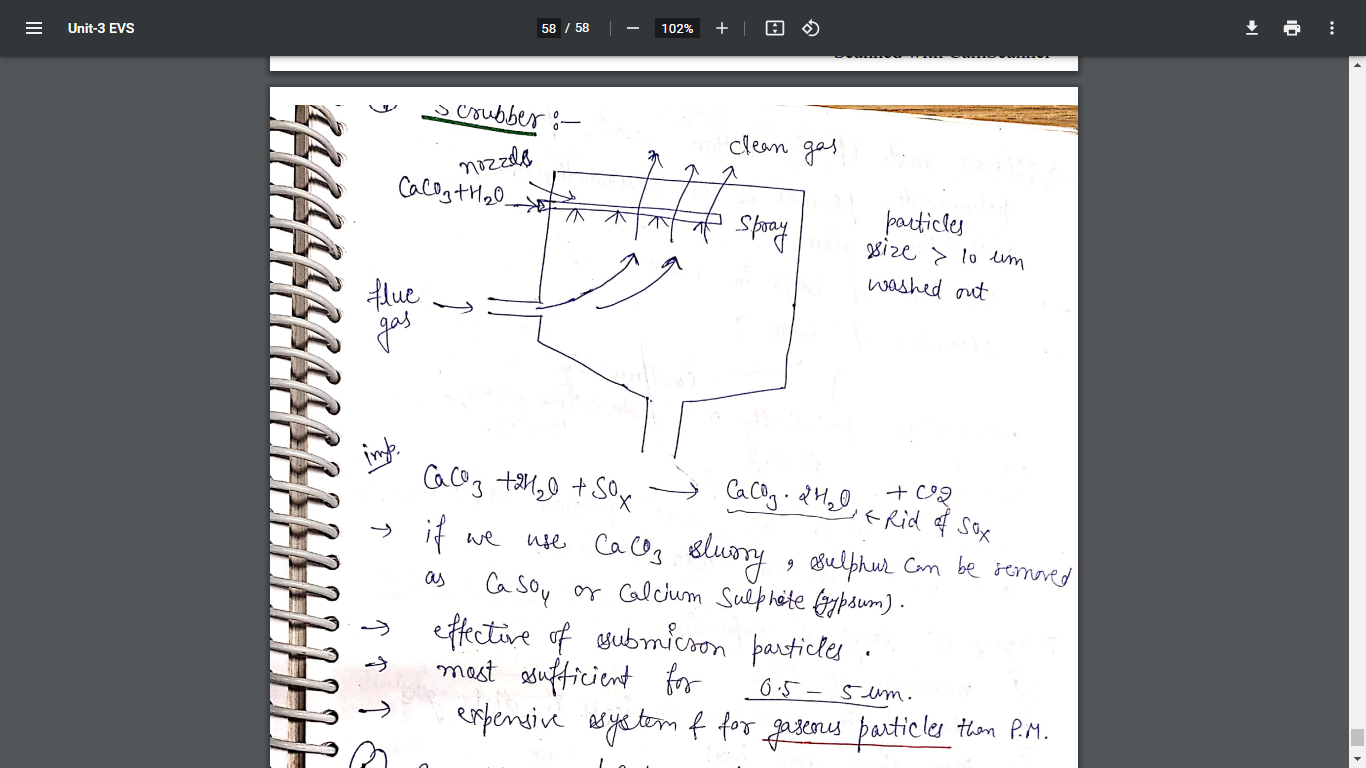 Unit-3 EVS
58 / 58
102%
Scrubber :-
nozzels
clean gas
CaCO3+H2O
Spray
particles
size > 10 um
washed out
flue
gas
imp.
CaCO3 +2H2O + SOx → CaCO3 . 2H2O + CO2
← Rid of SOx
→ if we use CaCO3 slurry, sulphur can be removed
as CaSO4 or Calcium Sulphate (gypsum).
→ effective of submicron particles.
→ most sufficient for 0.5 - 5 um.
→ expensive system & for gaseous particles than P.M.